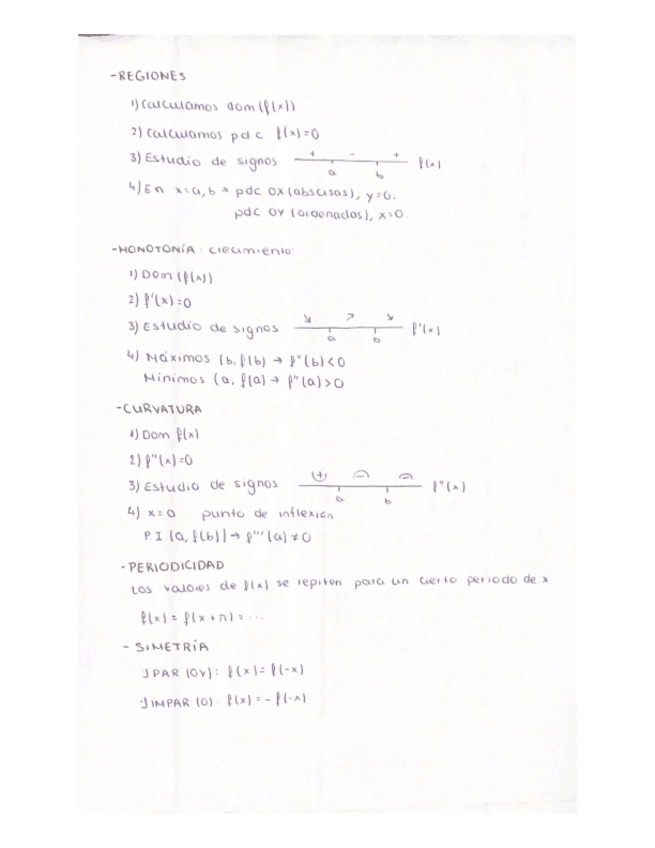 -REGIONES
1) Calculamos dom(f(x))
2) Calculamos pdc f(x)=0
3) Estudio de signos + - + f(x)
a b
4) En x=a,b → pdc OX (abscisas), y=0.
pdc OY (ordenadas), x=0.
-MONOTONÍA: crecimiento
1) Dom (f(x))
2) f'(x)=0
3) Estudio de signos ↘ ↗ ↘ f'(x)
a b
4) Máximos (b, f(b) → f''(b)<0
Mínimos (a, f(a) → f''(a)>0
-CURVATURA
1) Dom f(x)
2) f''(x)=0
3) Estudio de signos (+) (-) f''(x)
a b
4) x=a punto de inflexión
P.I (a, f(b)) → f'''(a)≠0
·PERIODICIDAD
Los valores de f(x) se repiten para un cierto periodo de x
f(x) = f(x+n) = ...
- SIMETRÍA
·) PAR (OY): f(x) = f(-x)
·) IMPAR (O): f(x) = - f(-x)